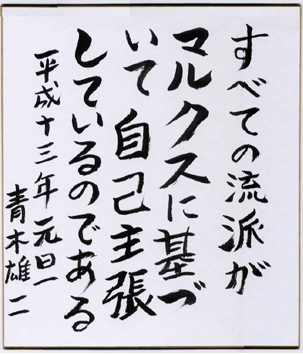 すべての流派が
マルクスに基づ
いて自己主張
しているのである
平成十三年元旦
青木雄二